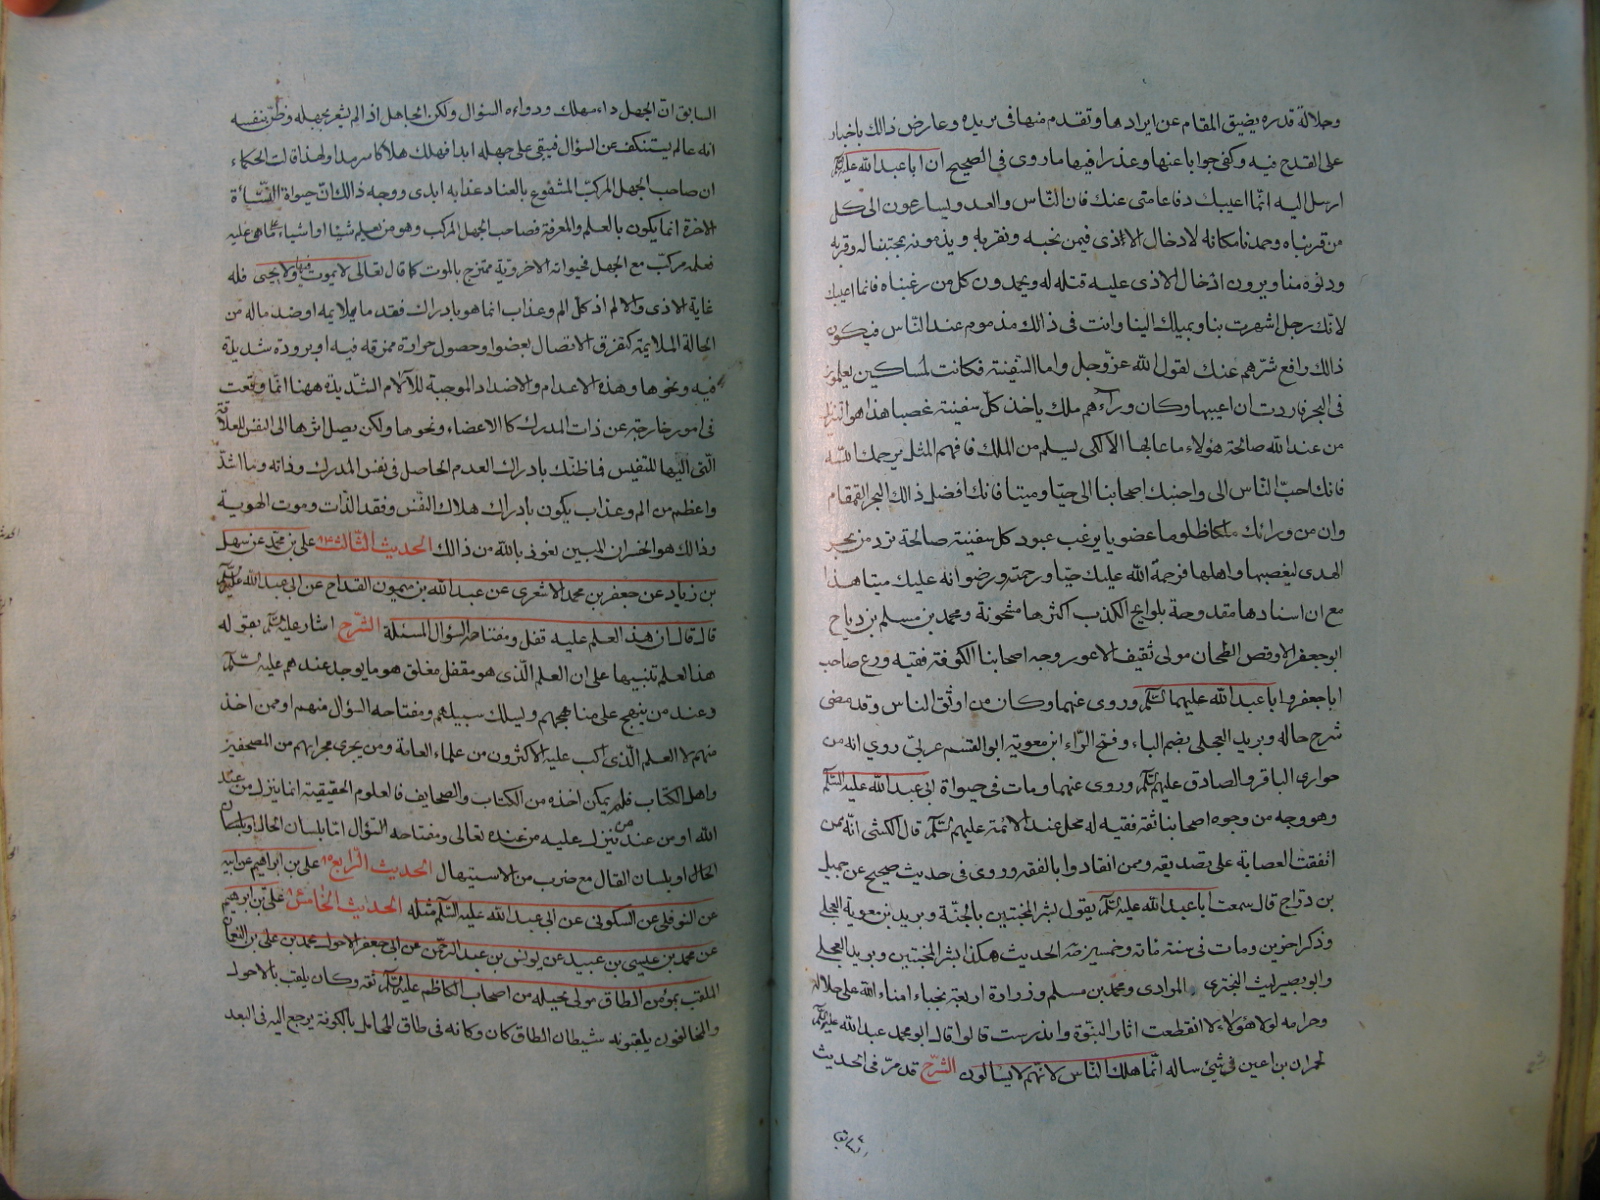 وجلالة قدره يضيق المقام عن ايرادها وتقدم منها فى بريده وعارض ذالك باخبار
على القدح فيه وكفى جوابا عنها وعذرا فيها ما روى فى الصحيح ان ابا عبد الله عليه
ارسل اليه انما اعيبك دفاعا منى عنك فان الناس والعدو يسارعون الى كل
من قربناه وحمدنا مكانه لادخال الاذى فيمن نحبه ونقربه ويذمونه بمحبتنا له وقربه
ودنوه منا ويرون ادخال الاذى عليه قتله له ويحمدون كل من رغبناه فانما اعيبك
لانك رجل اشهرت بنا وبميلك الينا وانت فى ذالك مذموم عند الناس فيكون
ذالك دافع شرهم عنك لقول الله عز وجل واما السفينة فكانت لمساكين يعلمون
فى البحر فاردت ان اعيبها وكان ورآءهم ملك ياخذ كل سفينة غصبا هذا هو التنزيل
من عند الله صالحة هؤلاء ما عابها الا لكى يسلم من الملك فافهم المثل يرحمك الله
فانك احب الناس الى واحب اصحابنا الى حيا وميتا فانك افضل ذالك البحر القمقام
وان من ورائك ملكا ظلوما غضوبا يرغب عبود كل سفينة صالحة ترد من بحر
الهدى ليغصبها واهلها فرحمة الله عليك حيا ورحمته ورضوانه عليك ميتا هذا
مع ان اسنادها مقدوحة بلوايح الكذب اكثرها مشحونة ومحمد بن مسلم بن رياح
ابو جعفر الاوقص الطحان مولى ثقيف الاعور وجه اصحابنا الكوفة فقيه ورع صاحب
ابا جعفر وابا عبد الله عليهما السلم وروى عنهما وكان من اوثق الناس وقد مضى
شرح حاله وبريد العجلى بضم الباء وفتح الراء ابن معوية ابو القسم عربى روي انه من
حوارى الباقر والصادق عليهم السلم وروى عنهما ومات فى حيوة ابى عبد الله عليه السلم
وهو وجه من وجوه اصحابنا ثقة فقيه له محل عند الائمة عليهم السلم قال الكشى انه ممن
اتفقت العصابة على تصديقه وممن انقادوا بالفقه وروى فى حديث صحيح عن جميل
بن دراج قال سمعت ابا عبد الله عليه السلم يقول بشر المخبتين بالجنة وبريد بن معوية العجلى
وذكر اخرين ومات فى سنة مائة وخمسين صه الحديث هكذا بشر المخبتين وبريد العجلى
وابو بصير ليث البخترى المرادى ومحمد بن مسلم وزرارة اربعة نجباء امناء الله على حلاله
وحرامه لولا هؤلاء لانقطعت اثار النبوة واندرست قالوا قال ابو محمد عبد الله عليه السلم
لحمران بن اعين فى شئ ساله انما هلك الناس لانهم لا يسالون الشرح قد مر فى الحديث
السابق ان الجهل داء مهلك ودواءه السؤال ولكن الجاهل اذا لم يشعر بجهله وظن بنفسه
انه عالم يستنكف عن السؤال فيبقى على جهله ابدا فهلك هلاكا سرمدا ولهذا قالت الحكماء
ان صاحب الجهل المركب المشفوع بالعناد عذابه ابدى ووجه ذالك ان حيواة النشأة
الاخرة انما يكون بالعلم والمعرفة فصاحب الجهل المركب وهو من يعلم شيئا او اشياء على ما هى عليه
فعلمه مركب مع الجهل فحيواته الاخروية ممتزج بالموت كما قال تعالى لا يموت فيها ولا يحيى فله
غاية الاذى والالم اذ كل الم وعذاب انما هو بادراك فقد ما يلايمه او ضد ماله من
الحالة الملايمة كتفرق الاتصال بعضو او حصول حرارة ممزقة فيه او برودة شديدة
فيه ونحوها وهذه الاعدام والاضداد الموجبة للآلام الشديدة ههنا انما وقعت
فى امور خارجة عن ذات المدرك كالاعضاء ونحوها ولكن يصل اثرها الى النفس للعلاقة
التى اليها للنفس فما ظنك بادراك العدم الحاصل فى نفس المدرك وذاته وما اشد
واعظم من الم وعذاب يكون بادراك هلاك النفس وفقد الذات وموت الهوية
وذالك هو الخسران المبين نعوذ بالله من ذالك الحديث الثالث على بن محمد عن سهل
بن زياد عن جعفر بن محمد الاشعرى عن عبد الله بن ميمون القداح عن ابى عبد الله عليه السلم
قال قال ان هذا العلم عليه قفل ومفتاحه السؤال المسئلة الشرح اشار عليه السلم بقوله
هذا العلم تنبيها على ان العلم الذى هو مقفل مغلق هو ما يوجد عندهم عليهم السلم
وعند من ينهج على مناهجهم ويسلك سبيلهم ومفتاحه السؤال منهم او ممن اخذ
منهم لا العلم الذى اكب عليه الاكثرون من علماء العامة ومن يجرى مجراهم من المصحفين
واهل الكتاب فلم يمكن اخذه من الكتاب والصحايف فالعلوم الحقيقية انما ينزل من عند
الله او من عند من ينزل عليه من عنده تعالى ومفتاحه السؤال اما بلسان الحال او بلسان
الحال او بلسان القال مع ضرب من الاستيهال الحديث الرابع على بن ابراهيم عن ابيه
عن النوفلى عن السكونى عن ابى عبد الله عليه السلم مثله الحديث الخامس على بن ابرهيم
عن محمد بن عيسى بن عبيد عن يونس بن عبد الرحمن عن ابى جعفر الاحول محمد بن على بن النعمان
الملقب بمؤمن الطاق مولى بجيله من اصحاب الكاظم عليه السلم ثقة وكان يلقب بالاحول
والمخالفون يلقبونه شيطان الطاق كان وكانه فى طاق المحامل بالكوفة يرجع اليه فى النقد